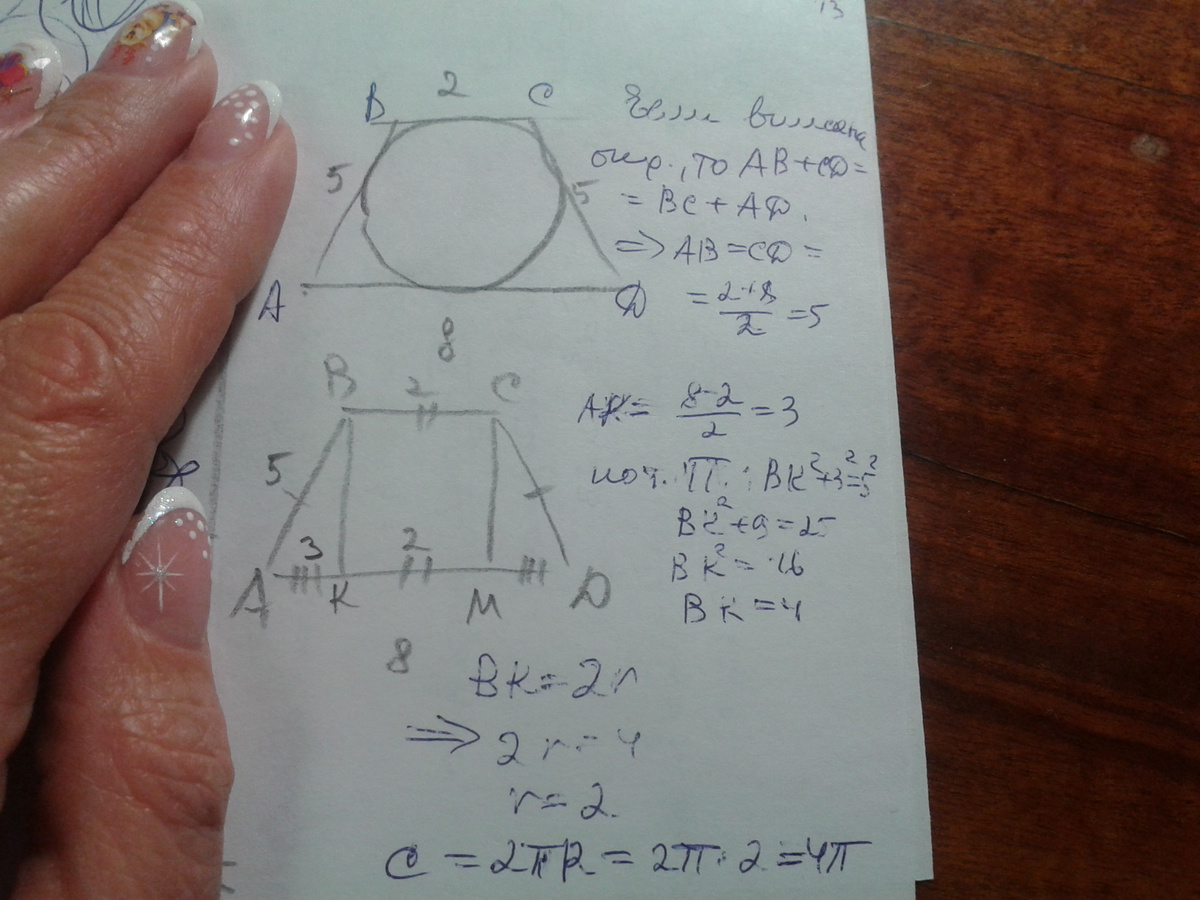 13
B 2 C
5 5
A D
8
Если вписана
окр., то AB+CD=
= BC + AD.
⇒ AB = CD =
= 2+8/2 = 5
B 2 C
5
3 2
A K M D
8
AK = 8-2/2 = 3
по т. П.: BK²+3²=5²
BK²+9=25
BK²=16
BK=4
BK=2r
⇒ 2r=4
r=2.
C = 2πR = 2π·2 = 4π